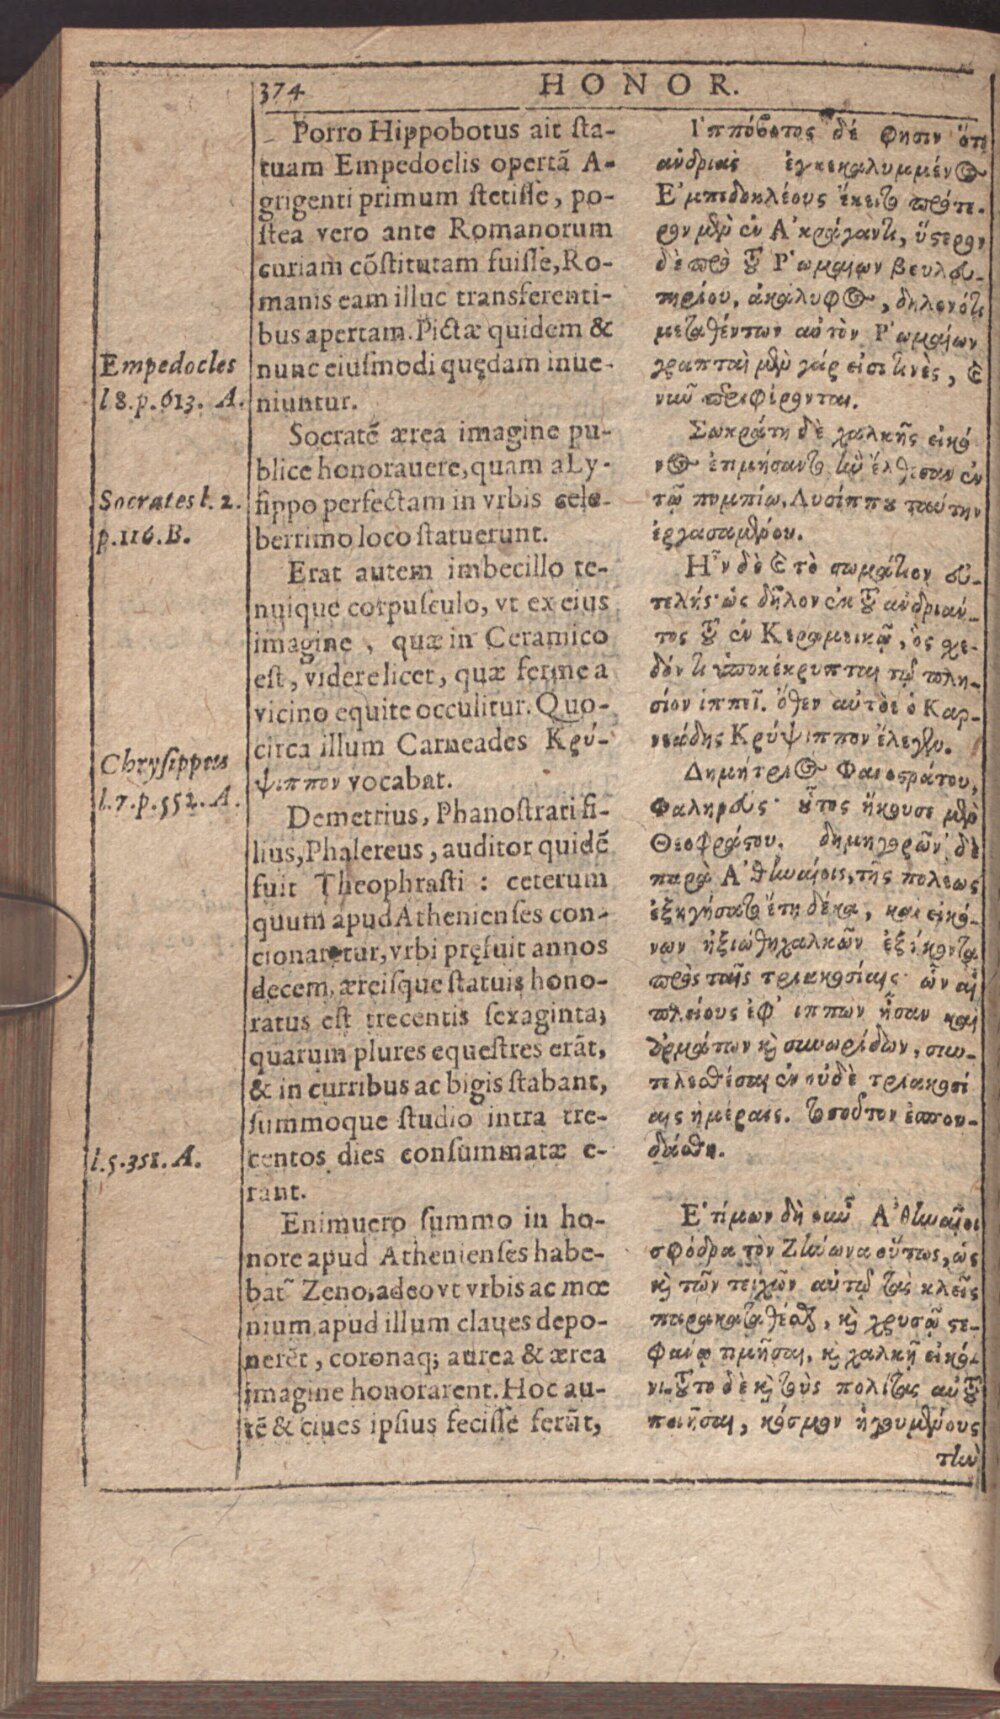 374
HONOR.
Porro Hippobotus ait sta-
tuam Empedoclis opertã A-
grigenti primum stetisse, po-
stea vero ante Romanorum
curiam cõstitutam fuisse, Ro-
manis eam illuc transferenti-
bus apertam. Pictæ quidem &
nunc eiusmodi quędam inue-
niuntur.
Empedocles
l 8. p. 613. A.
Socratẽ ærea imagine pu-
blice honorauere, quam a Ly-
sippo perfectam in vrbis cele-
berrimo loco statuerunt.
Socrates l. 2.
p. 116. B.
Erat autem imbecillo te-
nuique corpusculo, vt ex eius
imagine, quæ in Ceramico
est, videre licet, quæ ferme a
vicino equite occulitur. Quo-
circa illum Carneades Κρύ-
ψιππον vocabat.
Chrysippus
l. 7. p. 552. A.
Demetrius, Phanostrati fi-
lius, Phalereus, auditor quidẽ
fuit Theophrasti: ceterum
quum apud Athenienses con-
cionaretur, vrbi pręfuit annos
decem, æreisque statuis hono-
ratus est trecentis sexaginta;
quarum plures equestres erãt,
& in curribus ac bigis stabant,
summoque studio intra tre-
centos dies consummatæ e-
rant.
l. 5. 351. A.
Enimuero summo in ho-
nore apud Athenienses habe-
bat~ Zeno, adeo vt vrbis ac mœ
nium apud illum claues depo-
nerẽt, coronaq; aurea & ærea
imagine honorarent. Hoc au-
tẽ & ciues ipsius fecisse ferũt,
Ἱππόβοτος δέ φησιν ὅτι
ἀνδριὰς ἐγκεκαλυμμένος
Ἐμπεδοκλέους ἔκειτο πρότε-
ρον μὲν ἐν Ἀκράγαντι, ὕστερον
δὲ πρὸ τοῦ Ῥωμαίων βουλευ-
τηρίου, ἀκάλυφος, δηλονότι
μεταθέντων αὐτὸν Ῥωμαίων
γραπταὶ μὲν γάρ εἰσι τινὲς, καὶ
νῦν περιφέρονται.
Σωκράτη δὲ χαλκῆς εἰκό
νος ἐτιμήσαντο ἣν ἔθεσαν ἐν
τῷ πομπίῳ, Λυσίππου ταύτην
ἐργασαμένου.
Ἦν δὲ καὶ τὸ σωμάτιον εὐ-
τελής· ὡς δῆλον ἐκ τοῦ ἀνδριάν-
τος τοῦ ἐν Κεραμεικῷ, ὃς χε-
δόν τι ὑποκέκρυπται τῷ πλη-
σίον ἱππεῖ. ὅθεν αὐτὸν ὁ Καρ-
νεάδης Κρύψιππον ἔλεγεν.
Δημήτριος Φανοστράτου,
Φαληρεὺς· οὗτος ἤκουσε μὲν
Θεοφράστου. δημηγορῶν δὲ
παρὰ Ἀθηναίοις, τῆς πόλεως
ἐξηγήσατο ἔτη δέκα, καὶ εἰκό-
νων ἠξιώθη χαλκῶν ἑξήκοντα
πρὸς ταῖς τριακοσίαις· ὧν αἱ
πλείους ἐφ' ἵππων ἦσαν καὶ
ἁρμάτων καὶ συνωρίδων, συν-
τελεσθέσαι ἐν οὐδὲ τριακοσί
αις ἡμέραις. τοσοῦτον ἐσπου-
δάσθη.
Ἐτίμων δὴ οὖν Ἀθηναῖοι
σφόδρα τὸν Ζήνωνα οὕτως, ὡς
καὶ τῶν τειχῶν αὐτῷ τὰς κλεῖς
παρακαταθέσθαι, καὶ χρυσῷ στε-
φάνῳ τιμῆσαι, καὶ χαλκῇ εἰκό-
νι. τοῦτο δὲ καὶ τοὺς πολίτας αὐτοῦ
ποιῆσαι, κόσμον ἡγουμένους
τὴν